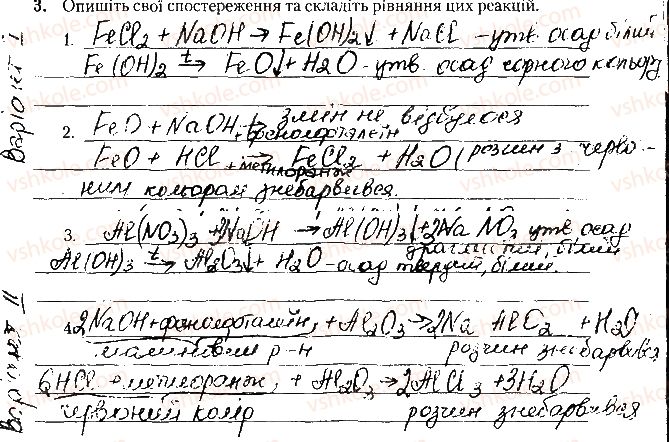 3. Опишіть свої спостереження та складіть рівняння цих реакцій.
Варіант I
1. FeCl₂ + NaOH → Fe(OH)₂↓ + NaCl - утв. осад білий
Fe(OH)₂ →t FeO↓ + H₂O - утв. осад чорного кольору
2. FeO + NaOH + фенолфталеїн → змін не відбулося
FeO + HCl + метилоранж → FeCl₂ + H₂O (розчин з черво-
ним кольором знебарвився.
3. Al(NO₃)₃ + 3NaOH → Al(OH)₃↓ + 3Na NO₃ утв. осад
драглистий, білий
Al(OH)₃ →t Al₂O₃↓ + H₂O - осад твердий, білий.
Варіант II
4. 2NaOH + фенолфталеїн, + Al₂O₃ → 2Na AlO₂ + H₂O
малиновий р-н розчин знебарвився
6HCl + метилоранж, + Al₂O₃ → 2AlCl₃ + 3H₂O
червоний колір розчин знебарвився